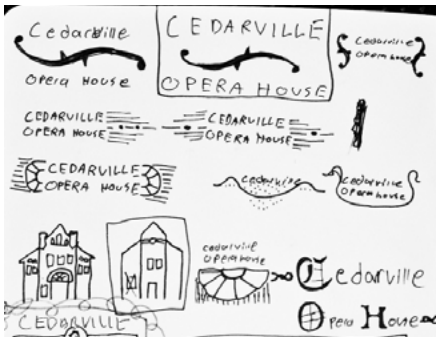 Cedarville
Opera House
CEDARVILLE
OPERA HOUSE
Cedarville
Opera house
CEDARVILLE
OPERA HOUSE
CEDARVILLE
OPERA HOUSE
CEDARVILLE
OPERA HOUSE
Cedarville
Cedarville
Opera house
cedarville
Opera house
Cedarville
Opera House
CEDARVILLE